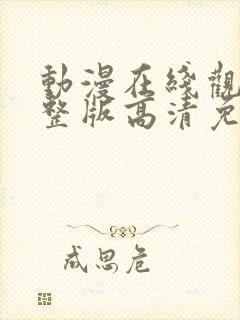 動漫在綫觀
整版高清免
成思危